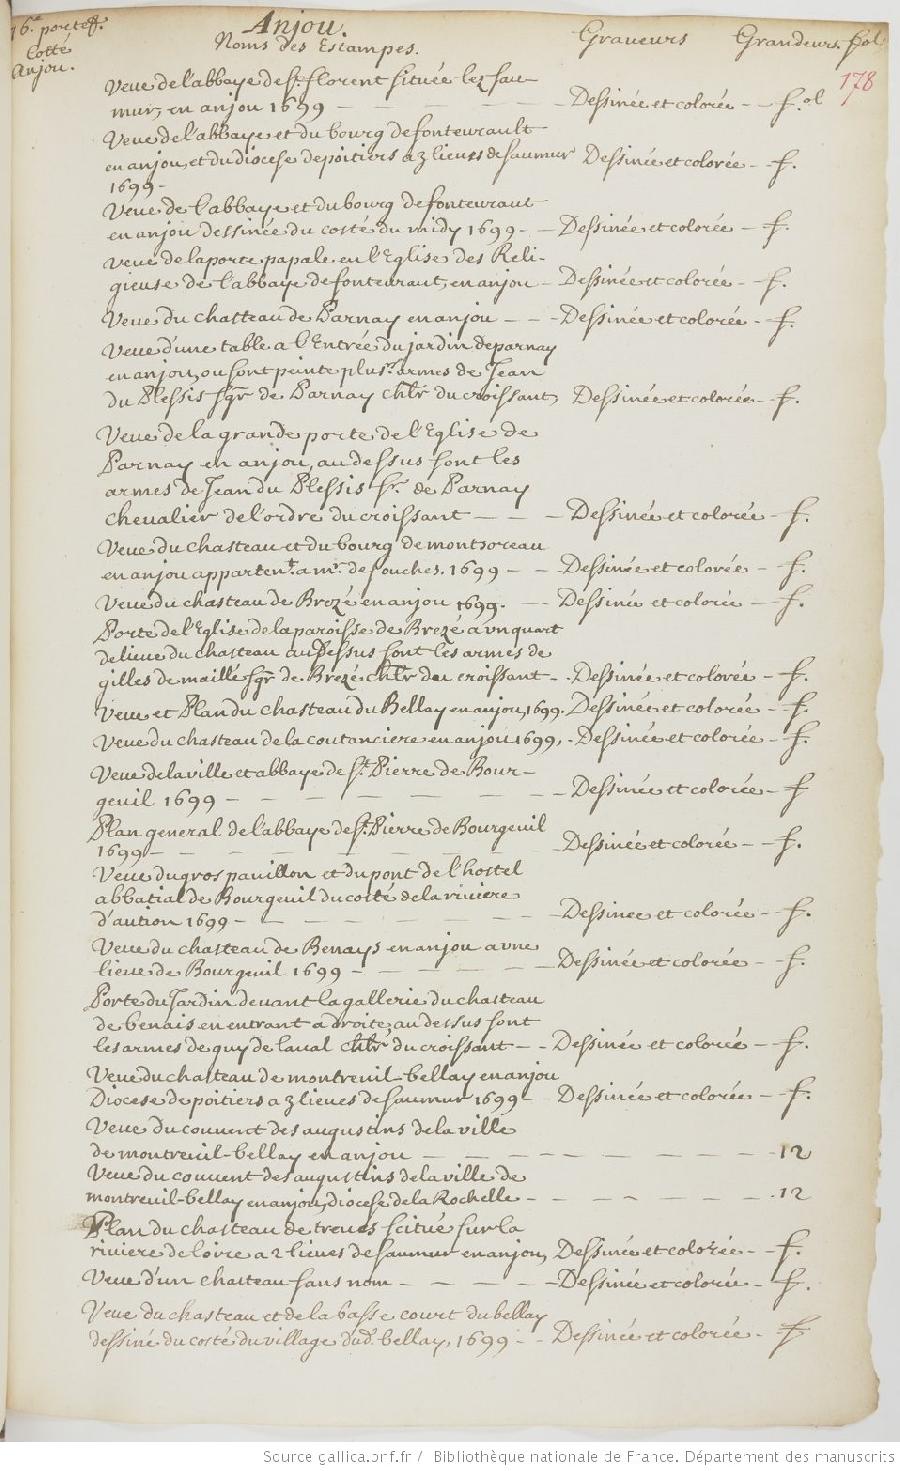 76.e portef.
cotté
Anjou.
Anjou.
Noms des Estampes. Graueurs Grandeurs. fol.
178
Veue de l'abbaye de St. florent située lez sau-
mur, en anjou 1699 — Dessinée et colorée — f.ol
Veue de l'abbaye et du bourg de fonteurault
en anjou, et du diocese de poitiers a 3 lieues de saumur Dessinée et colorée — f.
1699 -
Veue de l'abbaye et du bourg de fonteuraut
en anjou dessinée du costé du midy 1699 - — Dessinée et colorée — f.
Veue de la porte papale en l'Eglise des Reli-
gieuse de l'abbaye de fonteuraut, en anjou — Dessinée et colorée - f.
Veue du chasteau de Parnay en anjou — — - Dessinée et colorée — f.
Veue d'une table a l'Entrée du jardin de parnay
en anjou, ou sont peinte plus.rs armes de Jean
du Plessis sgr de Parnay chlr du croissant, Dessinée et colorée — f.
Veue de la grande porte de l'Eglise de
Parnay en anjou, au dessus sont les
armes de Jean du Plessis sr. de Parnay
chevalier de l'ordre du croissant — — — Dessinée et colorée — f.
Veue du chasteau et du bourg de montsoreau
en anjou apparten.t a mr. de souches. 1699 — — Dessinée et colorée — f.
Veue du chasteau de Brezé en anjou 1699. — — Dessinée et colorée — f.
Porte de l'Eglise de la paroisse de Brezé a vn quart
de lieue du chasteau au Dessus sont les armes de
gilles de maillé sgr de Brezé chlr du croissant — Dessinée et colorée — f.
Veue et Plan du chasteau du Bellay en anjou, 1699. Dessinée et colorée — f.
Veue du chasteau de la coutanciere en anjou 1699, - Dessinée et colorée — f.
Veue de la ville et abbaye de St. Pierre de Bour-
geuil 1699 — — — — — — — Dessinée et colorée — f
Plan general de l'abbaye de St. Pierre de Bourgeuil
1699 — — — — — — Dessinée et colorée — f.
Veue du gros pauillon et du pont de l'hostel
abbatial de Bourgeuil du costé de la riviere
d'aution 1699 — — — — — — — Dessinee et colorée — f.
Veue du chasteau de Benays en anjou a vne
lieue de Bourgeuil 1699 — — — — — Dessinée et colorée — f.
Porte du Jardin deuant la gallerie du chasteau
de benais en entrant a droite, au dessus sont
les armes de guy de laual chlr du croissant — - Dessinée et colorée — f.
Veue du chasteau de montreuil-bellay en anjou
Diocese de poitiers a 3 lieues de saumur 1699 - Dessinée et colorée — f.
Veue du couuent des augustins de la ville
de montreuil-bellay en anjou — — — — — — 12
Veue du couuent des augustins de la ville de
montreuil-bellay en anjou, diocese de la Rochelle — — — — — 12
Plan du chasteau de treues scitué sur la
riviere de loire a 2 lieues de saumur en anjou, Dessinée et colorée — f.
Veue d'un chasteau sans nom — — — — Dessinée et colorée — f.
Veue du chasteau et de la basse court du bellay
dessiné du costé du village dud. bellay, 1699 — - Dessinée et colorée - f
Source gallica.bnf.fr / Bibliothèque nationale de France. Département des manuscrits